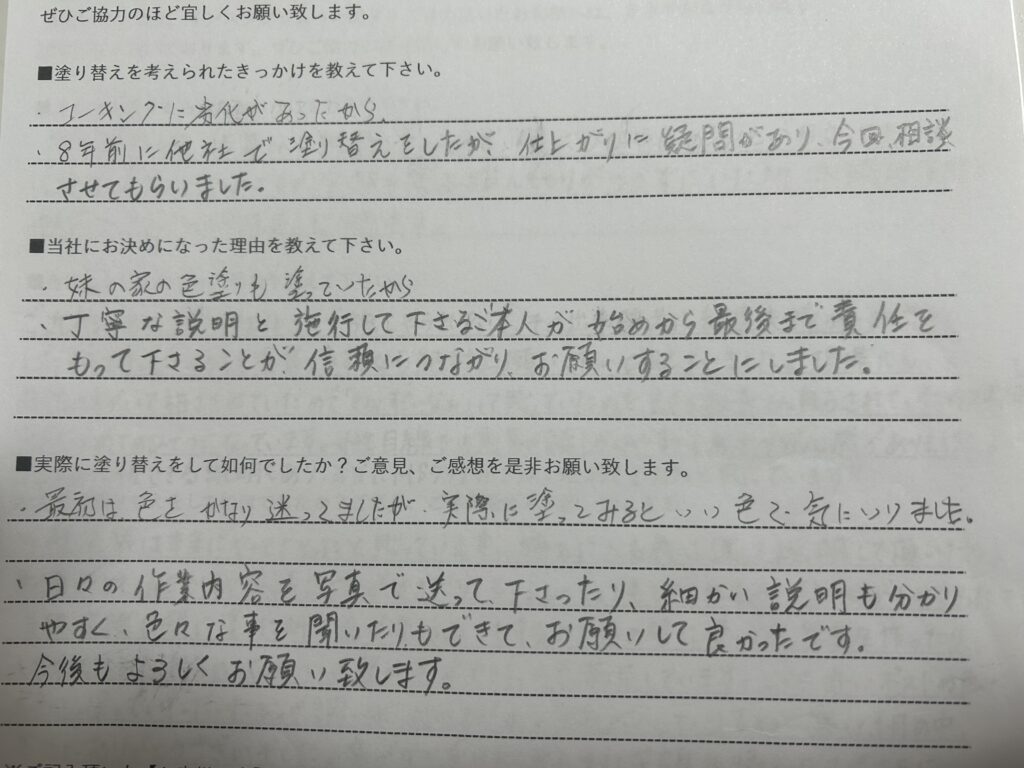 ぜひご協力のほど宜しくお願い致します。
■塗り替えを考えられたきっかけを教えて下さい。
・コーキングに劣化があったから、
・8年前に他社で塗り替えをしたが、仕上がりに疑問があり、今回、相談
させてもらいました。
■当社にお決めになった理由を教えて下さい。
・妹の家の色塗りも塗っていたから
・丁寧な説明と施行して下さるご本人が始めから最後まで責任を
もって下さることが、信頼につながり、お願いすることにしました。
■実際に塗り替えをして如何でしたか？ご意見、ご感想を是非お願い致します。
・最初は、色をかなり迷ってましたが、実際に塗ってみるといい色で、気にいりました。
・日々の作業内容を写真で送って、下さったり、細かい説明も分かり
やすく、色々な事を聞いたりもできて、お願いして良かったです。
今後もよろしくお願い致します。